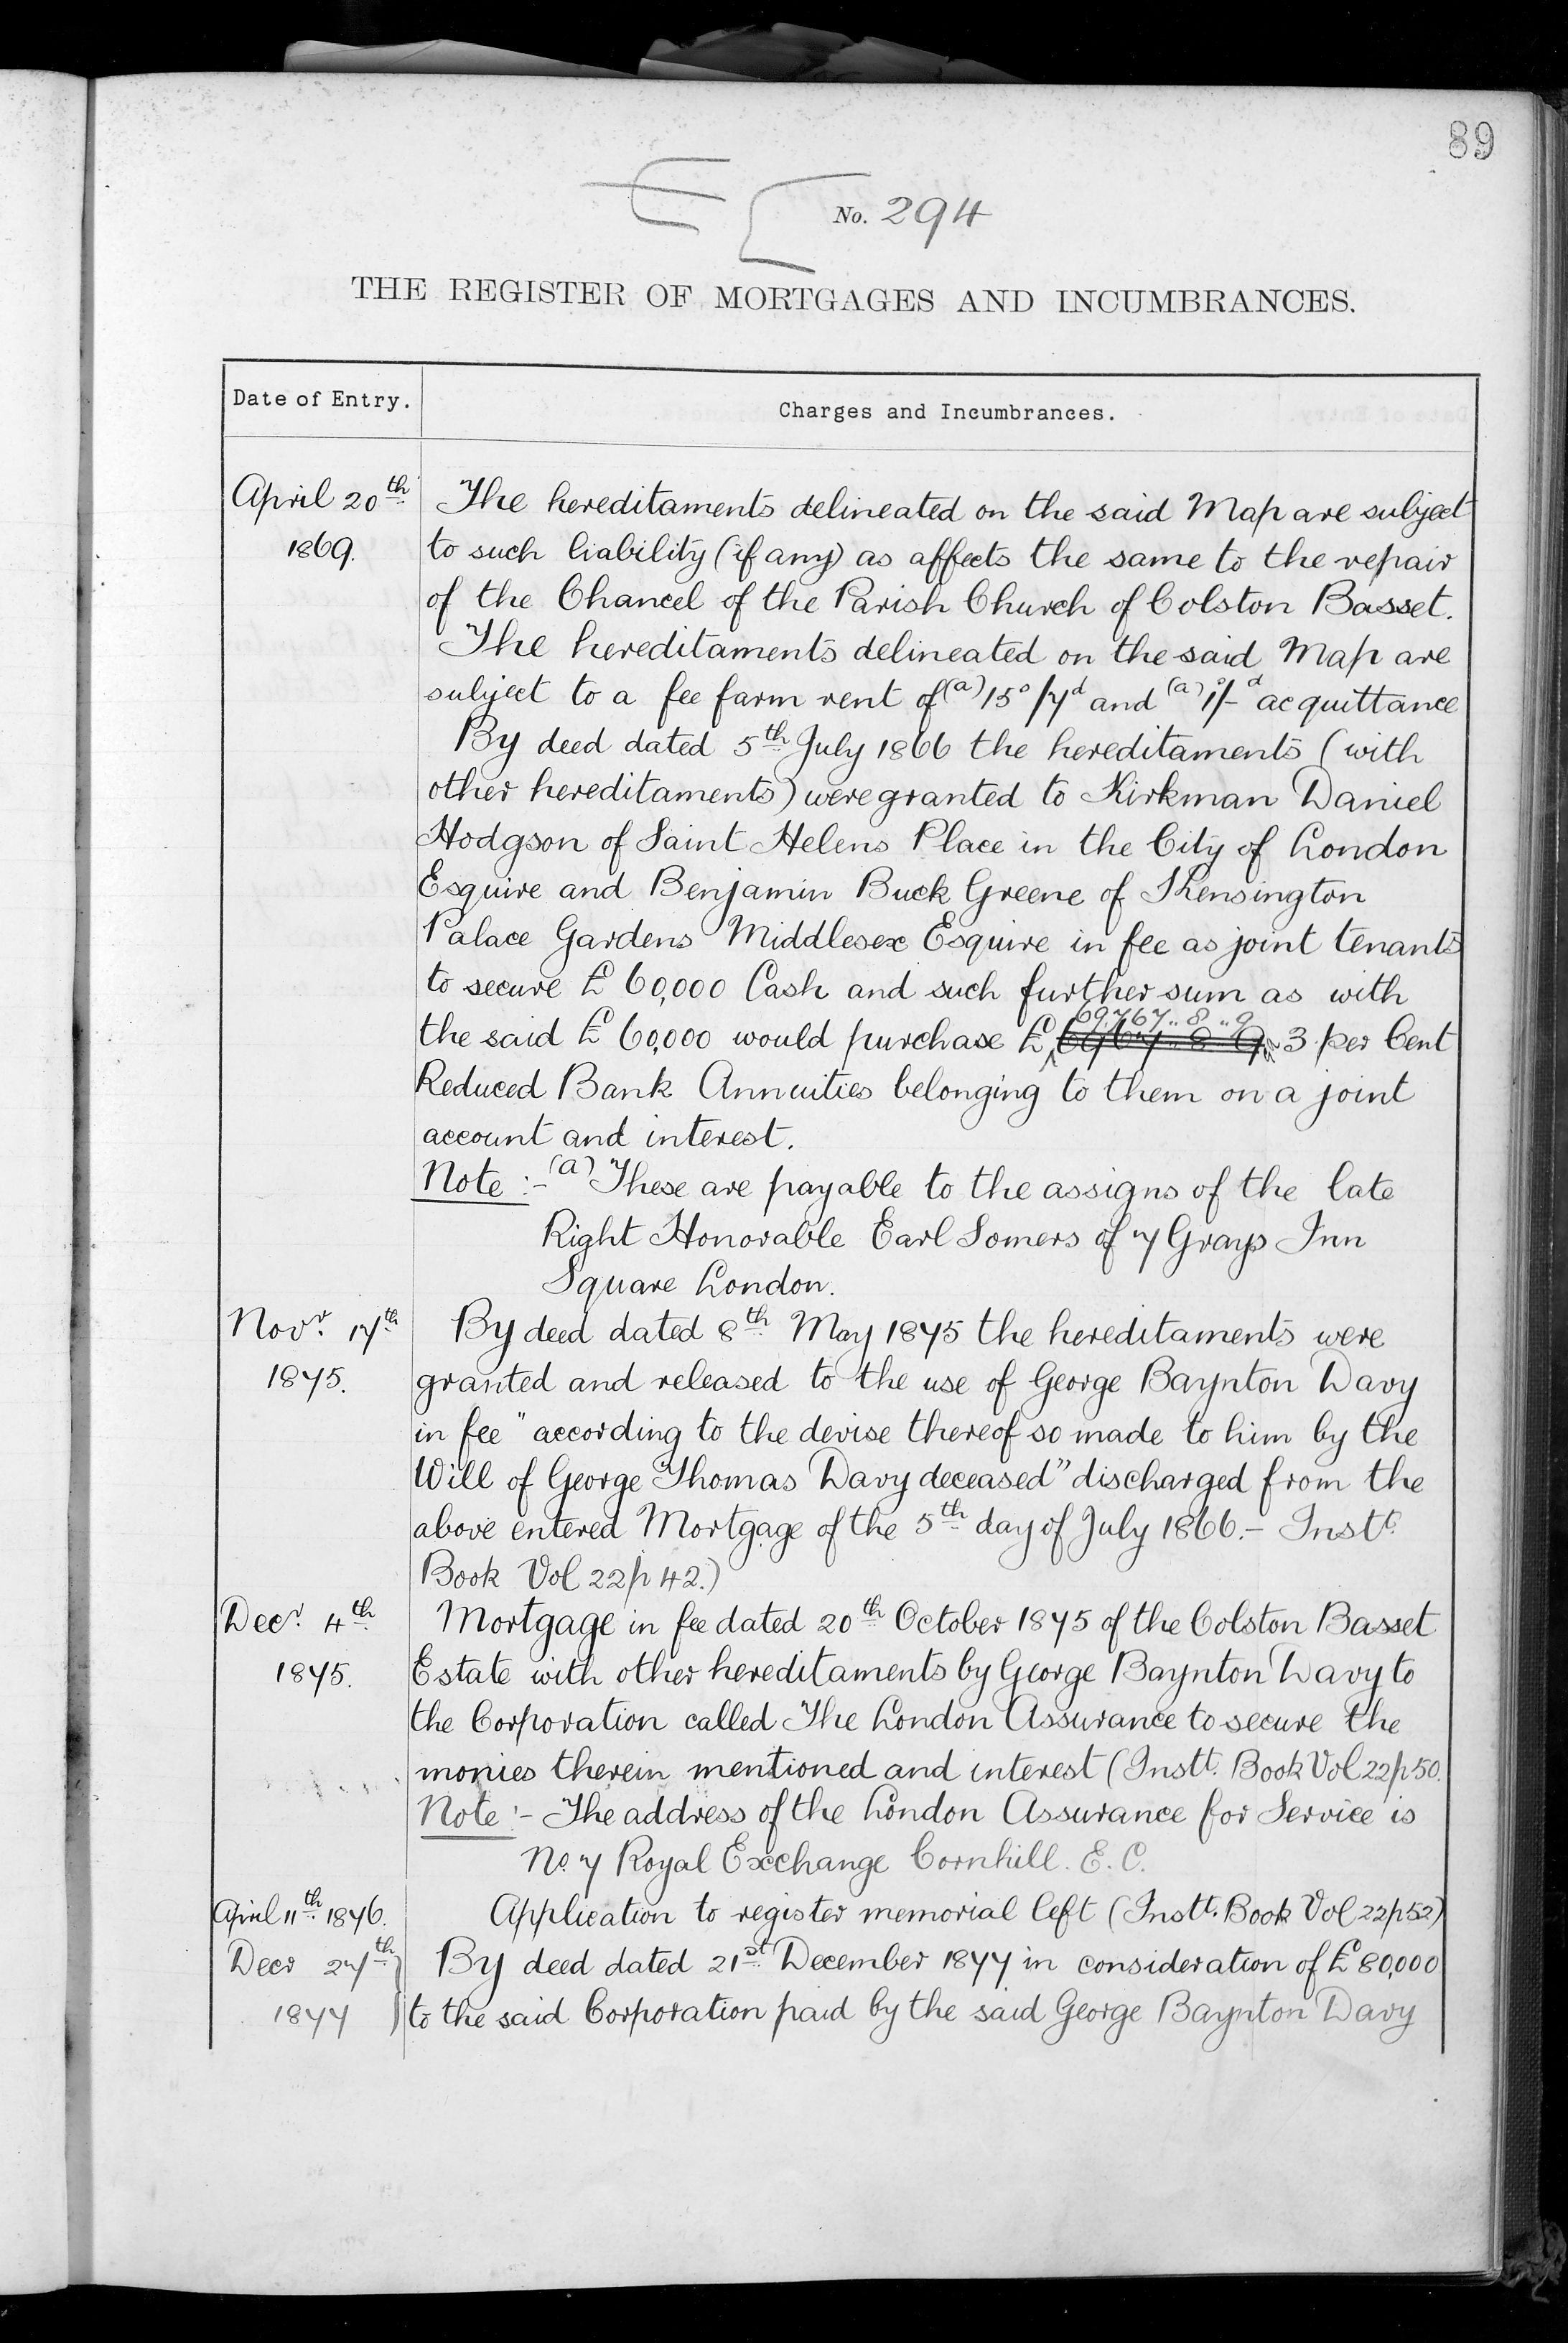 89
No. 294
THE REGISTER OF MORTGAGES AND INCUMBRANCES.
Date of Entry.
Charges and Incumbrances.
April 20th The hereditaments delineated on the said Map are subject
1869. to such liability (if any) as affects the same to the repair
of the Chancel of the Parish Church of Colston Basset.
The hereditaments delineated on the said Map are
subject to a fee farm rent of (a) 15s/7d and (a) 1s/-d acquittance
By deed dated 5th July 1866 the hereditaments (with
other hereditaments) were granted to Kirkman Daniel
Hodgson of Saint Helens Place in the City of London
Esquire and Benjamin Buck Greene of Kensington
Palace Gardens Middlesex Esquire in fee as joint tenants
to secure £60,000 Cash and such further sum as with
69,767..8..9
the said £60,000 would purchase £ 3 per Cent
Reduced Bank Annuities belonging to them on a joint
account and interest.
Note :- (a) These are payable to the assigns of the late
Right Honorable Earl Somers of 7 Grays Inn
Square London.
Novr. 17th By deed dated 8th May 1875 the hereditaments were
1875. granted and released to the use of George Baynton Davy
in fee "according to the devise thereof so made to him by the
Will of George Thomas Davy deceased" discharged from the
above entered Mortgage of the 5th day of July 1866.- Instt.
Book Vol 22 p 42.)
Decr. 4th Mortgage in fee dated 20th October 1875 of the Colston Basset
1875. Estate with other hereditaments by George Baynton Davy to
the Corporation called The London Assurance to secure the
monies therein mentioned and interest (Instt. Book Vol 22 p 50.
Note :- The address of the London Assurance for Service is
No. 7 Royal Exchange Cornhill. E. C.
April 11th 1876. Application to register memorial left (Instt. Book Vol 22 p 52)
Decr 27th } By deed dated 21st December 1877 in consideration of £80,000
1877 } to the said Corporation paid by the said George Baynton Davy